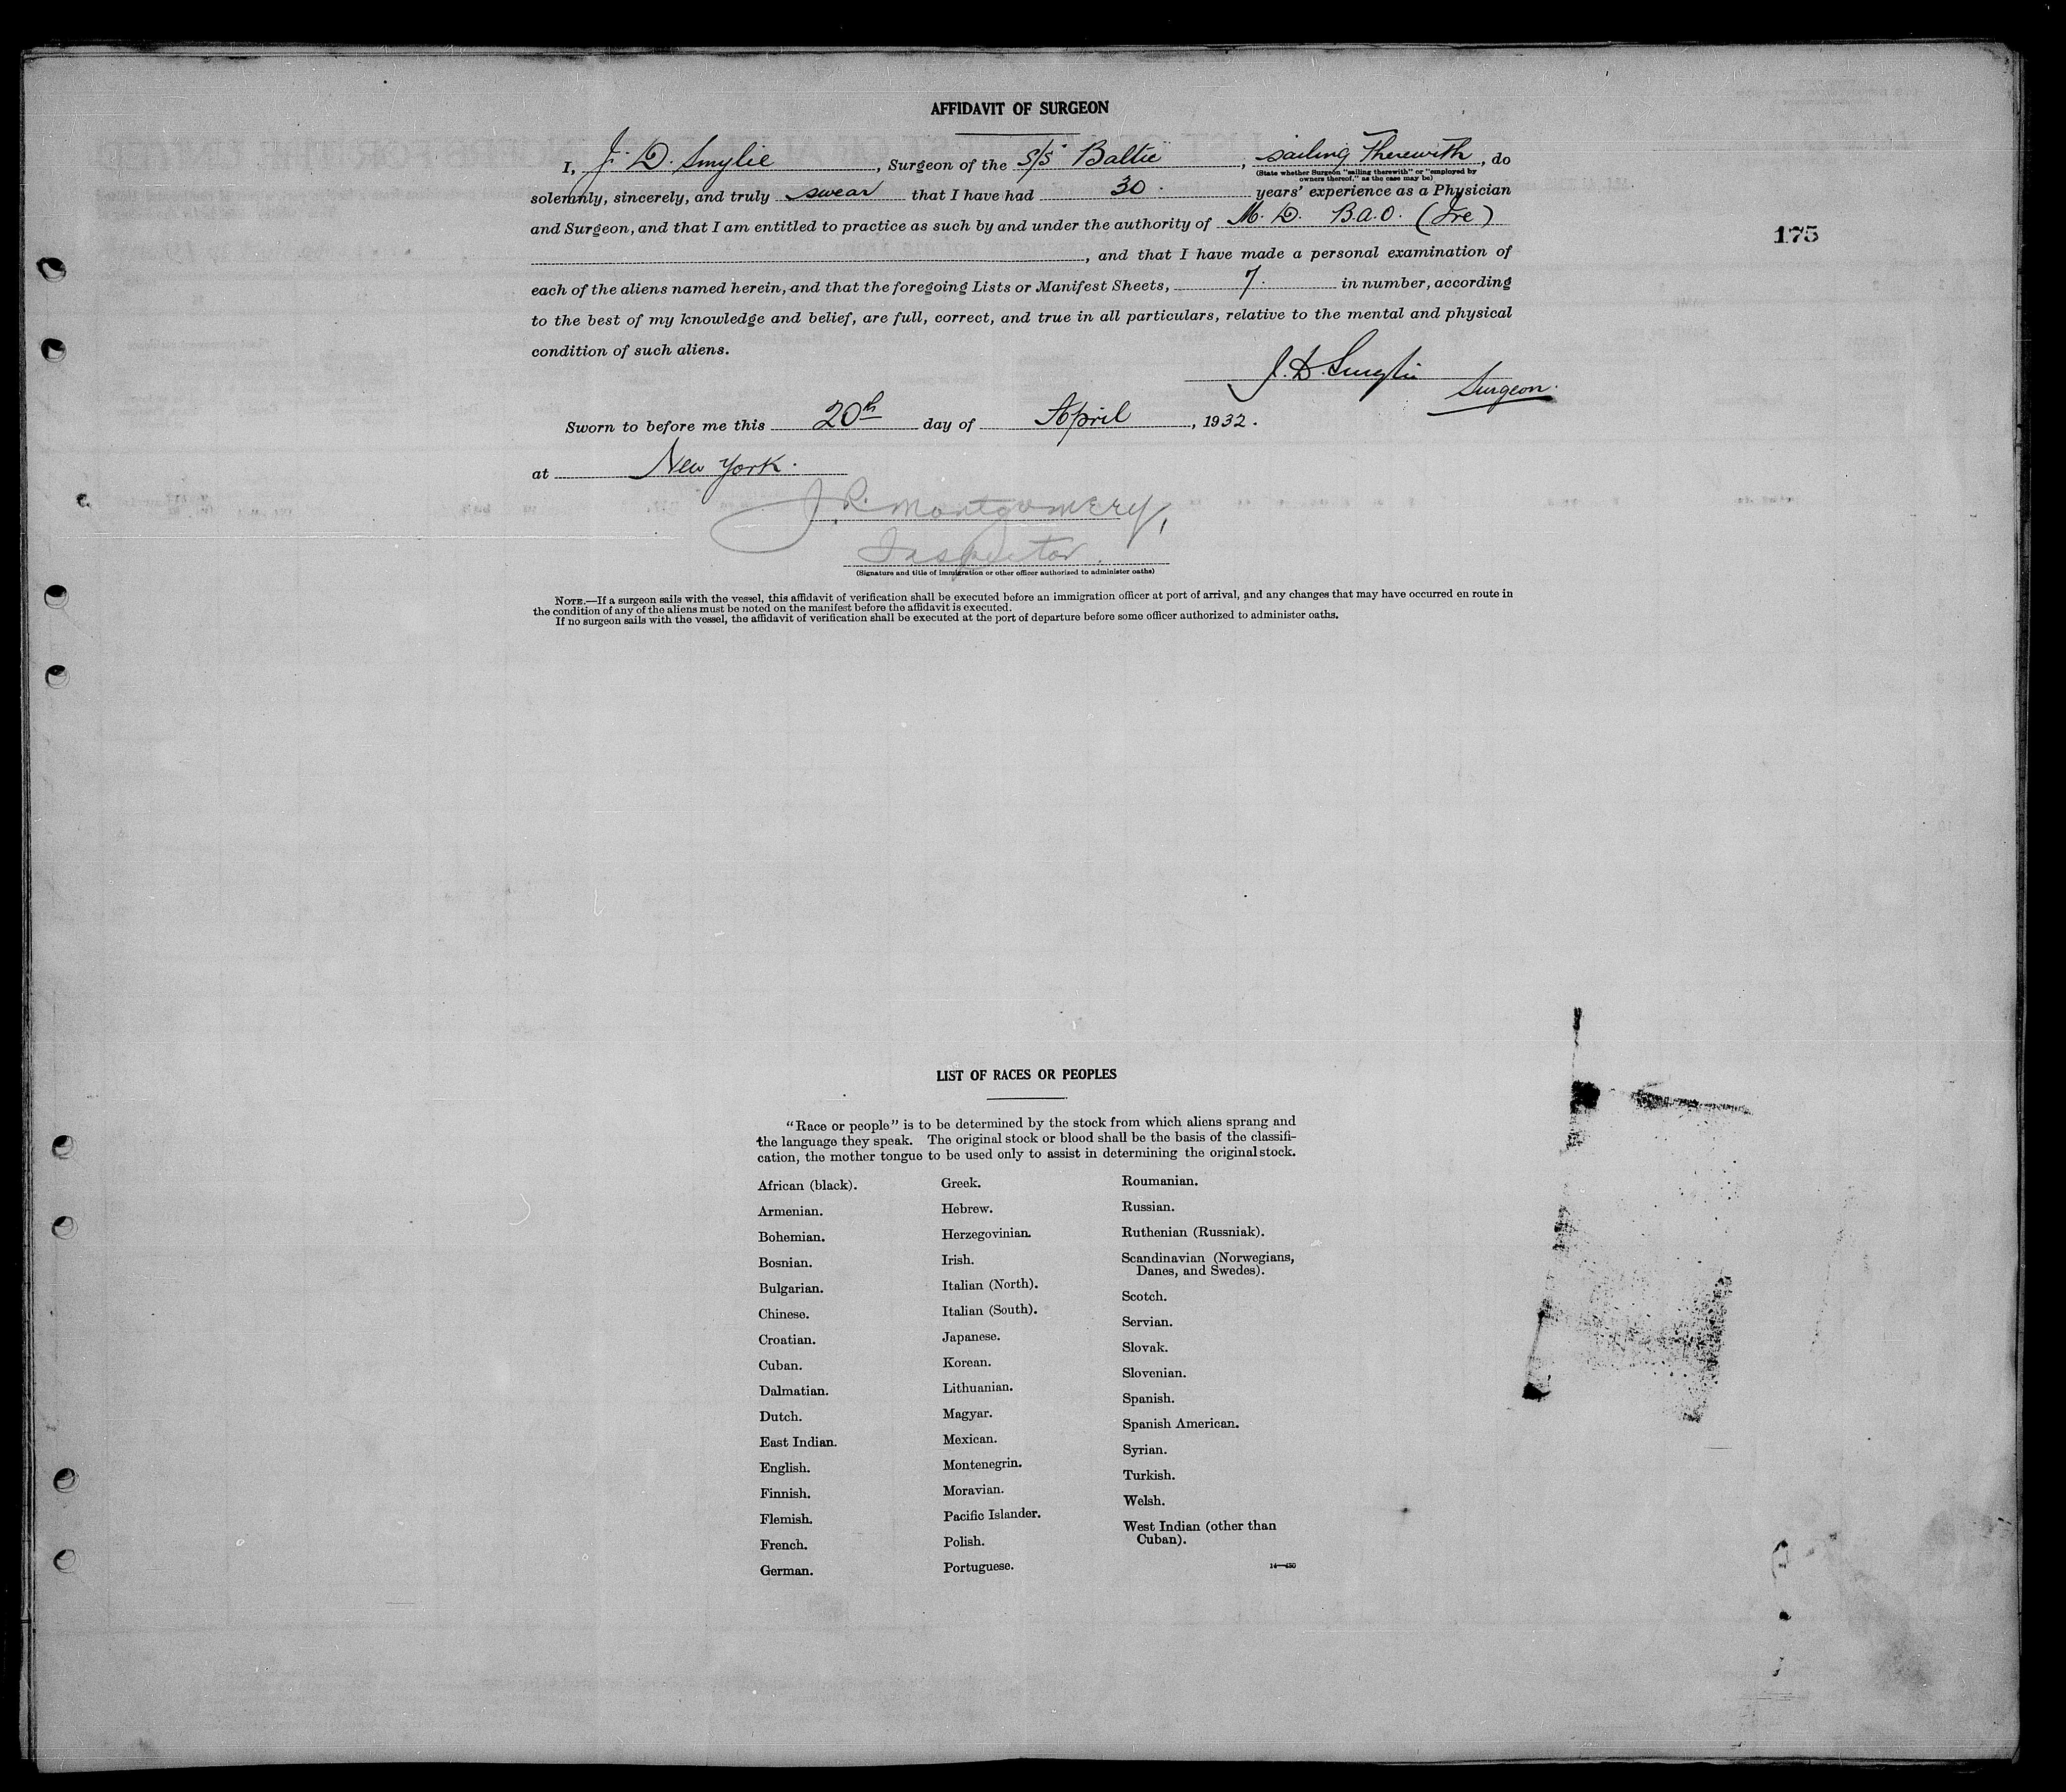 AFFIDAVIT OF SURGEON
I, J. D. Smylie, Surgeon of the S/S Baltic, sailing Therewith, do
(State whether Surgeon "sailing therewith" or "employed by
owners thereof," as the case may be)
solemnly, sincerely, and truly swear that I have had 30. years' experience as a Physician
and Surgeon, and that I am entitled to practice as such by and under the authority of M. D. B.A.O. (Ire)
175
, and that I have made a personal examination of
each of the aliens named herein, and that the foregoing Lists or Manifest Sheets, 7. in number, according
to the best of my knowledge and belief, are full, correct, and true in all particulars, relative to the mental and physical
condition of such aliens.
J. D. Smylie Surgeon.
Sworn to before me this 20th day of April, 1932.
at New York.
J. R. Montgomery,
Inspector.
(Signature and title of immigration or other officer authorized to administer oaths)
NOTE.—If a surgeon sails with the vessel, this affidavit of verification shall be executed before an immigration officer at port of arrival, and any changes that may have occurred en route in
the condition of any of the aliens must be noted on the manifest before the affidavit is executed.
If no surgeon sails with the vessel, the affidavit of verification shall be executed at the port of departure before some officer authorized to administer oaths.
LIST OF RACES OR PEOPLES
"Race or people" is to be determined by the stock from which aliens sprang and
the language they speak. The original stock or blood shall be the basis of the classifi-
cation, the mother tongue to be used only to assist in determining the original stock.
African (black).
Armenian.
Bohemian.
Bosnian.
Bulgarian.
Chinese.
Croatian.
Cuban.
Dalmatian.
Dutch.
East Indian.
English.
Finnish.
Flemish.
French.
German.
Greek.
Hebrew.
Herzegovinian.
Irish.
Italian (North).
Italian (South).
Japanese.
Korean.
Lithuanian.
Magyar.
Mexican.
Montenegrin.
Moravian.
Pacific Islander.
Polish.
Portuguese.
Roumanian.
Russian.
Ruthenian (Russniak).
Scandinavian (Norwegians,
Danes, and Swedes).
Scotch.
Servian.
Slovak.
Slovenian.
Spanish.
Spanish American.
Syrian.
Turkish.
Welsh.
West Indian (other than
Cuban).
14—430